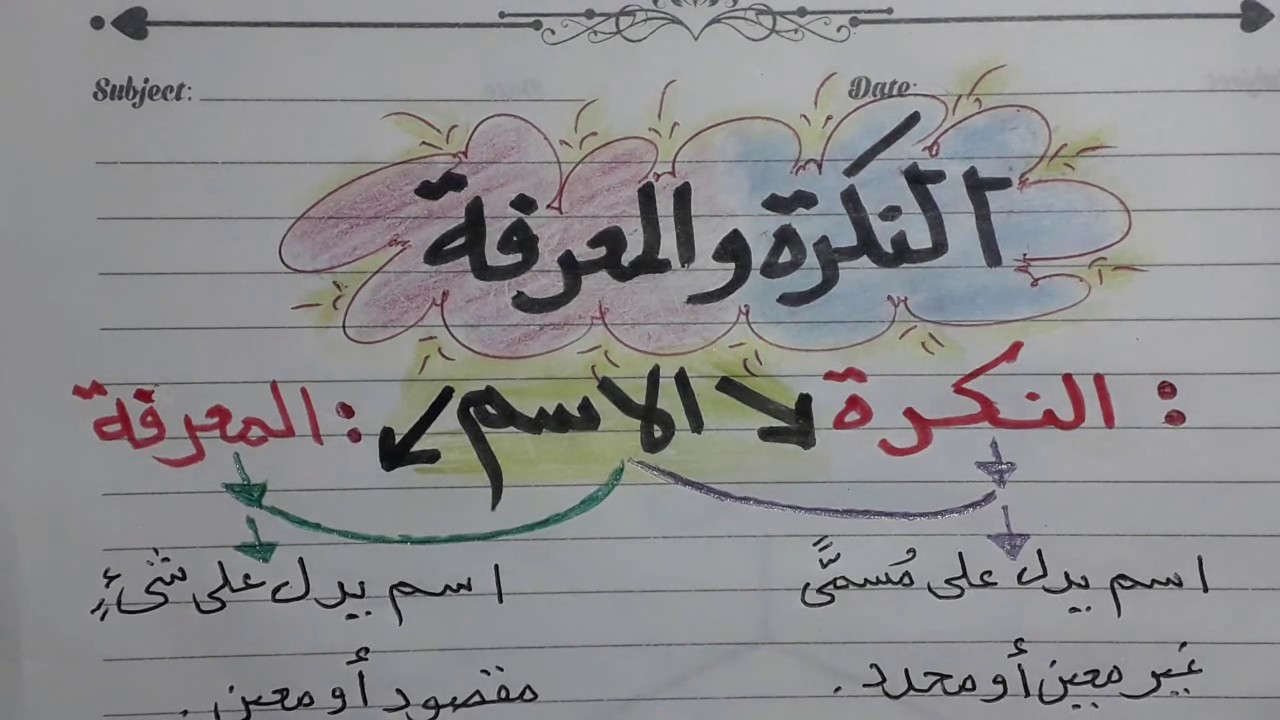 Subject: Date:
النكرة والمعرفة
: النكرة الاسم المعرفة :
اسم يدل على مُسمًّى
غير معين أو محدد .
اسم يدل على شيءٍ
مقصود أو معين .